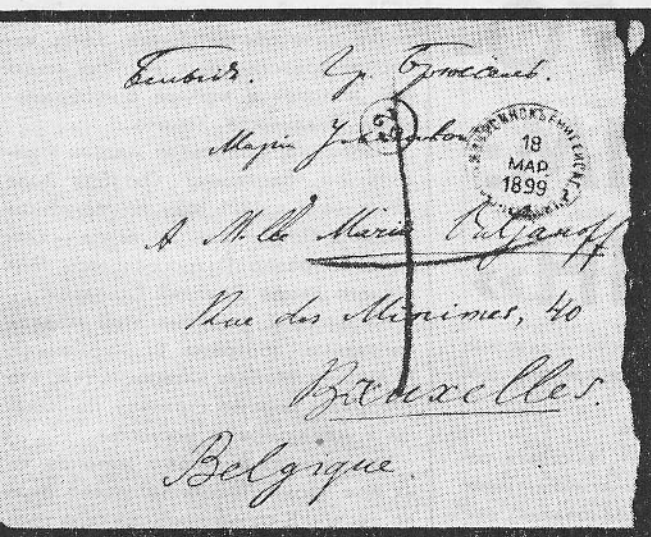 Бельгія. Гр. Брюссель.
Марія Ульянова
18
МАР
1899
A M-lle Marie Oulianoff
Rue des Minimes, 40
Bruxelles.
Belgique.